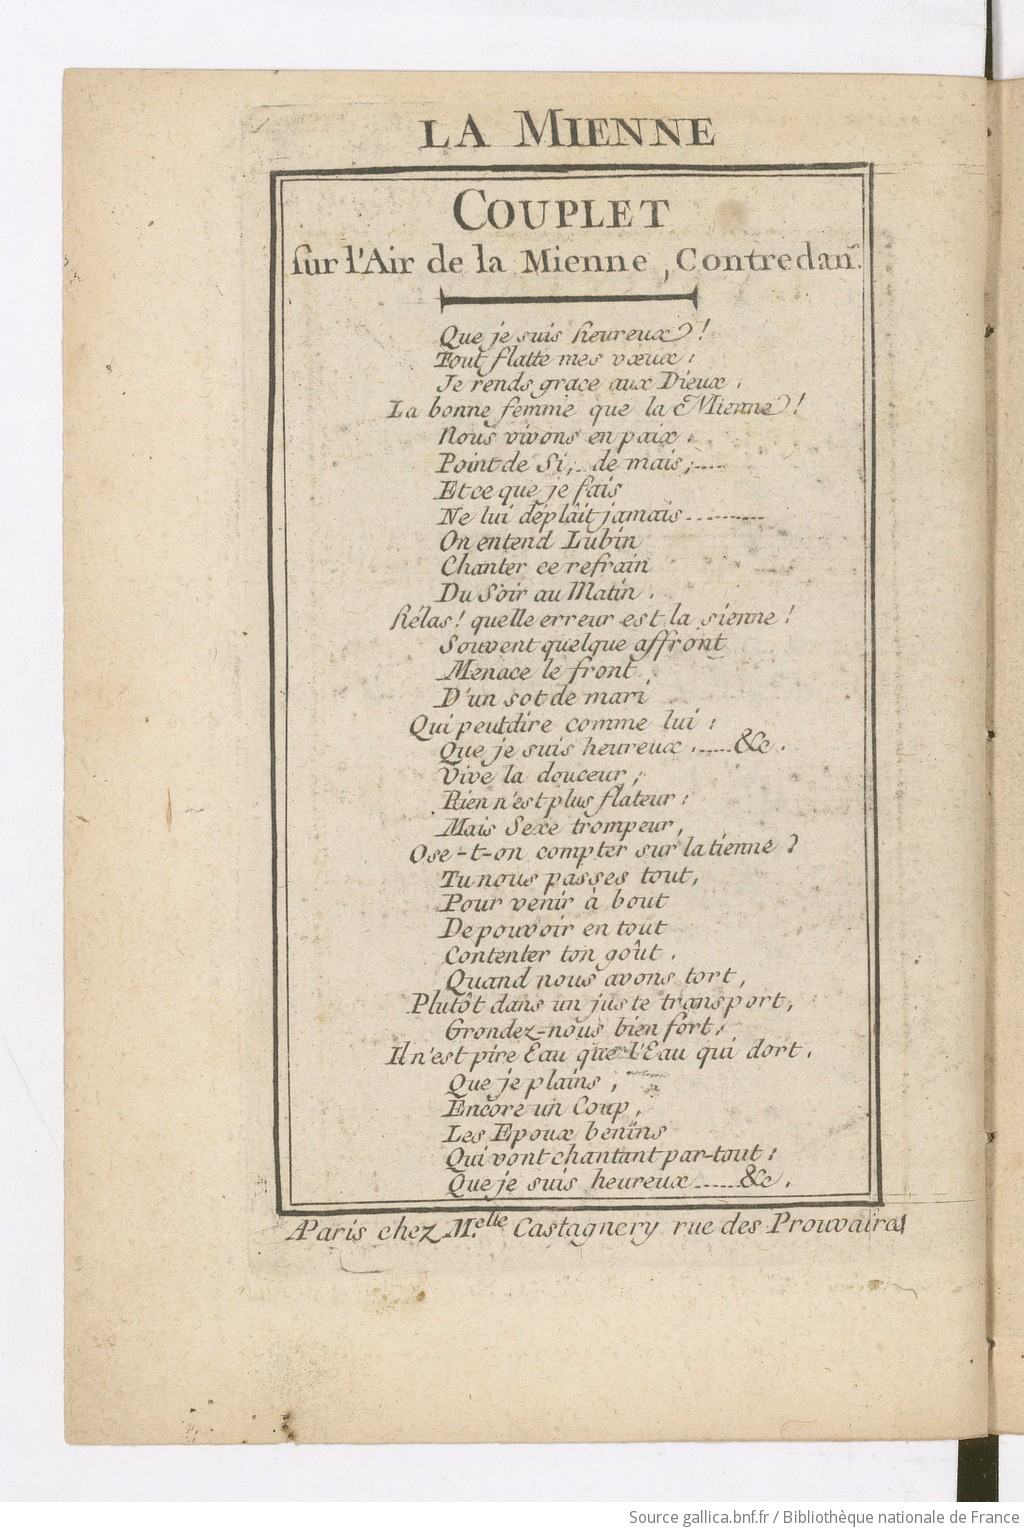 LA MIENNE
COUPLET
sur l'Air de la Mienne, Contredan.
Que je suis heureux !
Tout flatte mes vœux :
Je rends grace aux Dieux.
La bonne femme que la Mienne !
Nous vivons en paix.
Point de Si, de mais,....
Et ce que je fais
Ne lui déplâit jamais..........
On entend Lubin
Chanter ce refrain
Du Soir au Matin.
hélas! quelle erreur est la sienne !
Souvent quelque affront
Menace le front
D'un sot de mari
Qui peut dire comme lui :
Que je suis heureux......&c.
Vive la douceur,
Rien n'est plus flateur :
Mais Sexe trompeur,
Ose-t-on compter sur la tienne ?
Tu nous passes tout,
Pour venir à bout
De pouvoir en tout
Contenter ton goût.
Quand nous avons tort,
Plutôt dans un juste transport,
Grondez-nous bien fort,
Il n'est pire Eau que l'Eau qui dort.
Que je plains,
Encore un Coup,
Les Epoux benins
Qui vont chantant par-tout :
Que je suis heureux.....&c.
A Paris chez M.elle Castagnery rue des Prouvaires
Source gallica.bnf.fr / Bibliothèque nationale de France